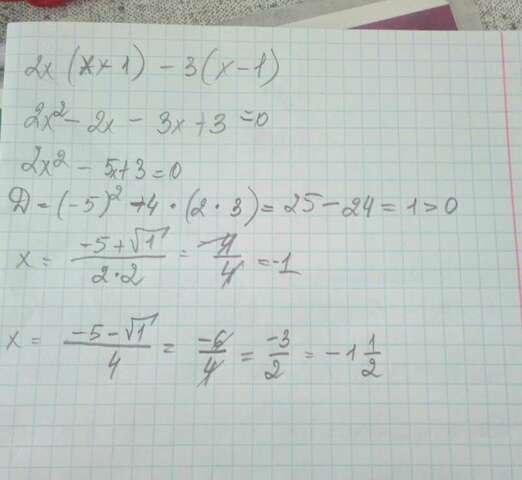 2x (x x 1) - 3(x-1)
2x² - 2x - 3x + 3 = 0
2x² - 5x + 3 = 0
D = (-5)² - 4 · (2 · 3) = 25 - 24 = 1 > 0
x = (-5+√1)/(2·2) = -4/4 = -1
x = (-5-√1)/4 = -6/4 = -3/2 = -1 1/2